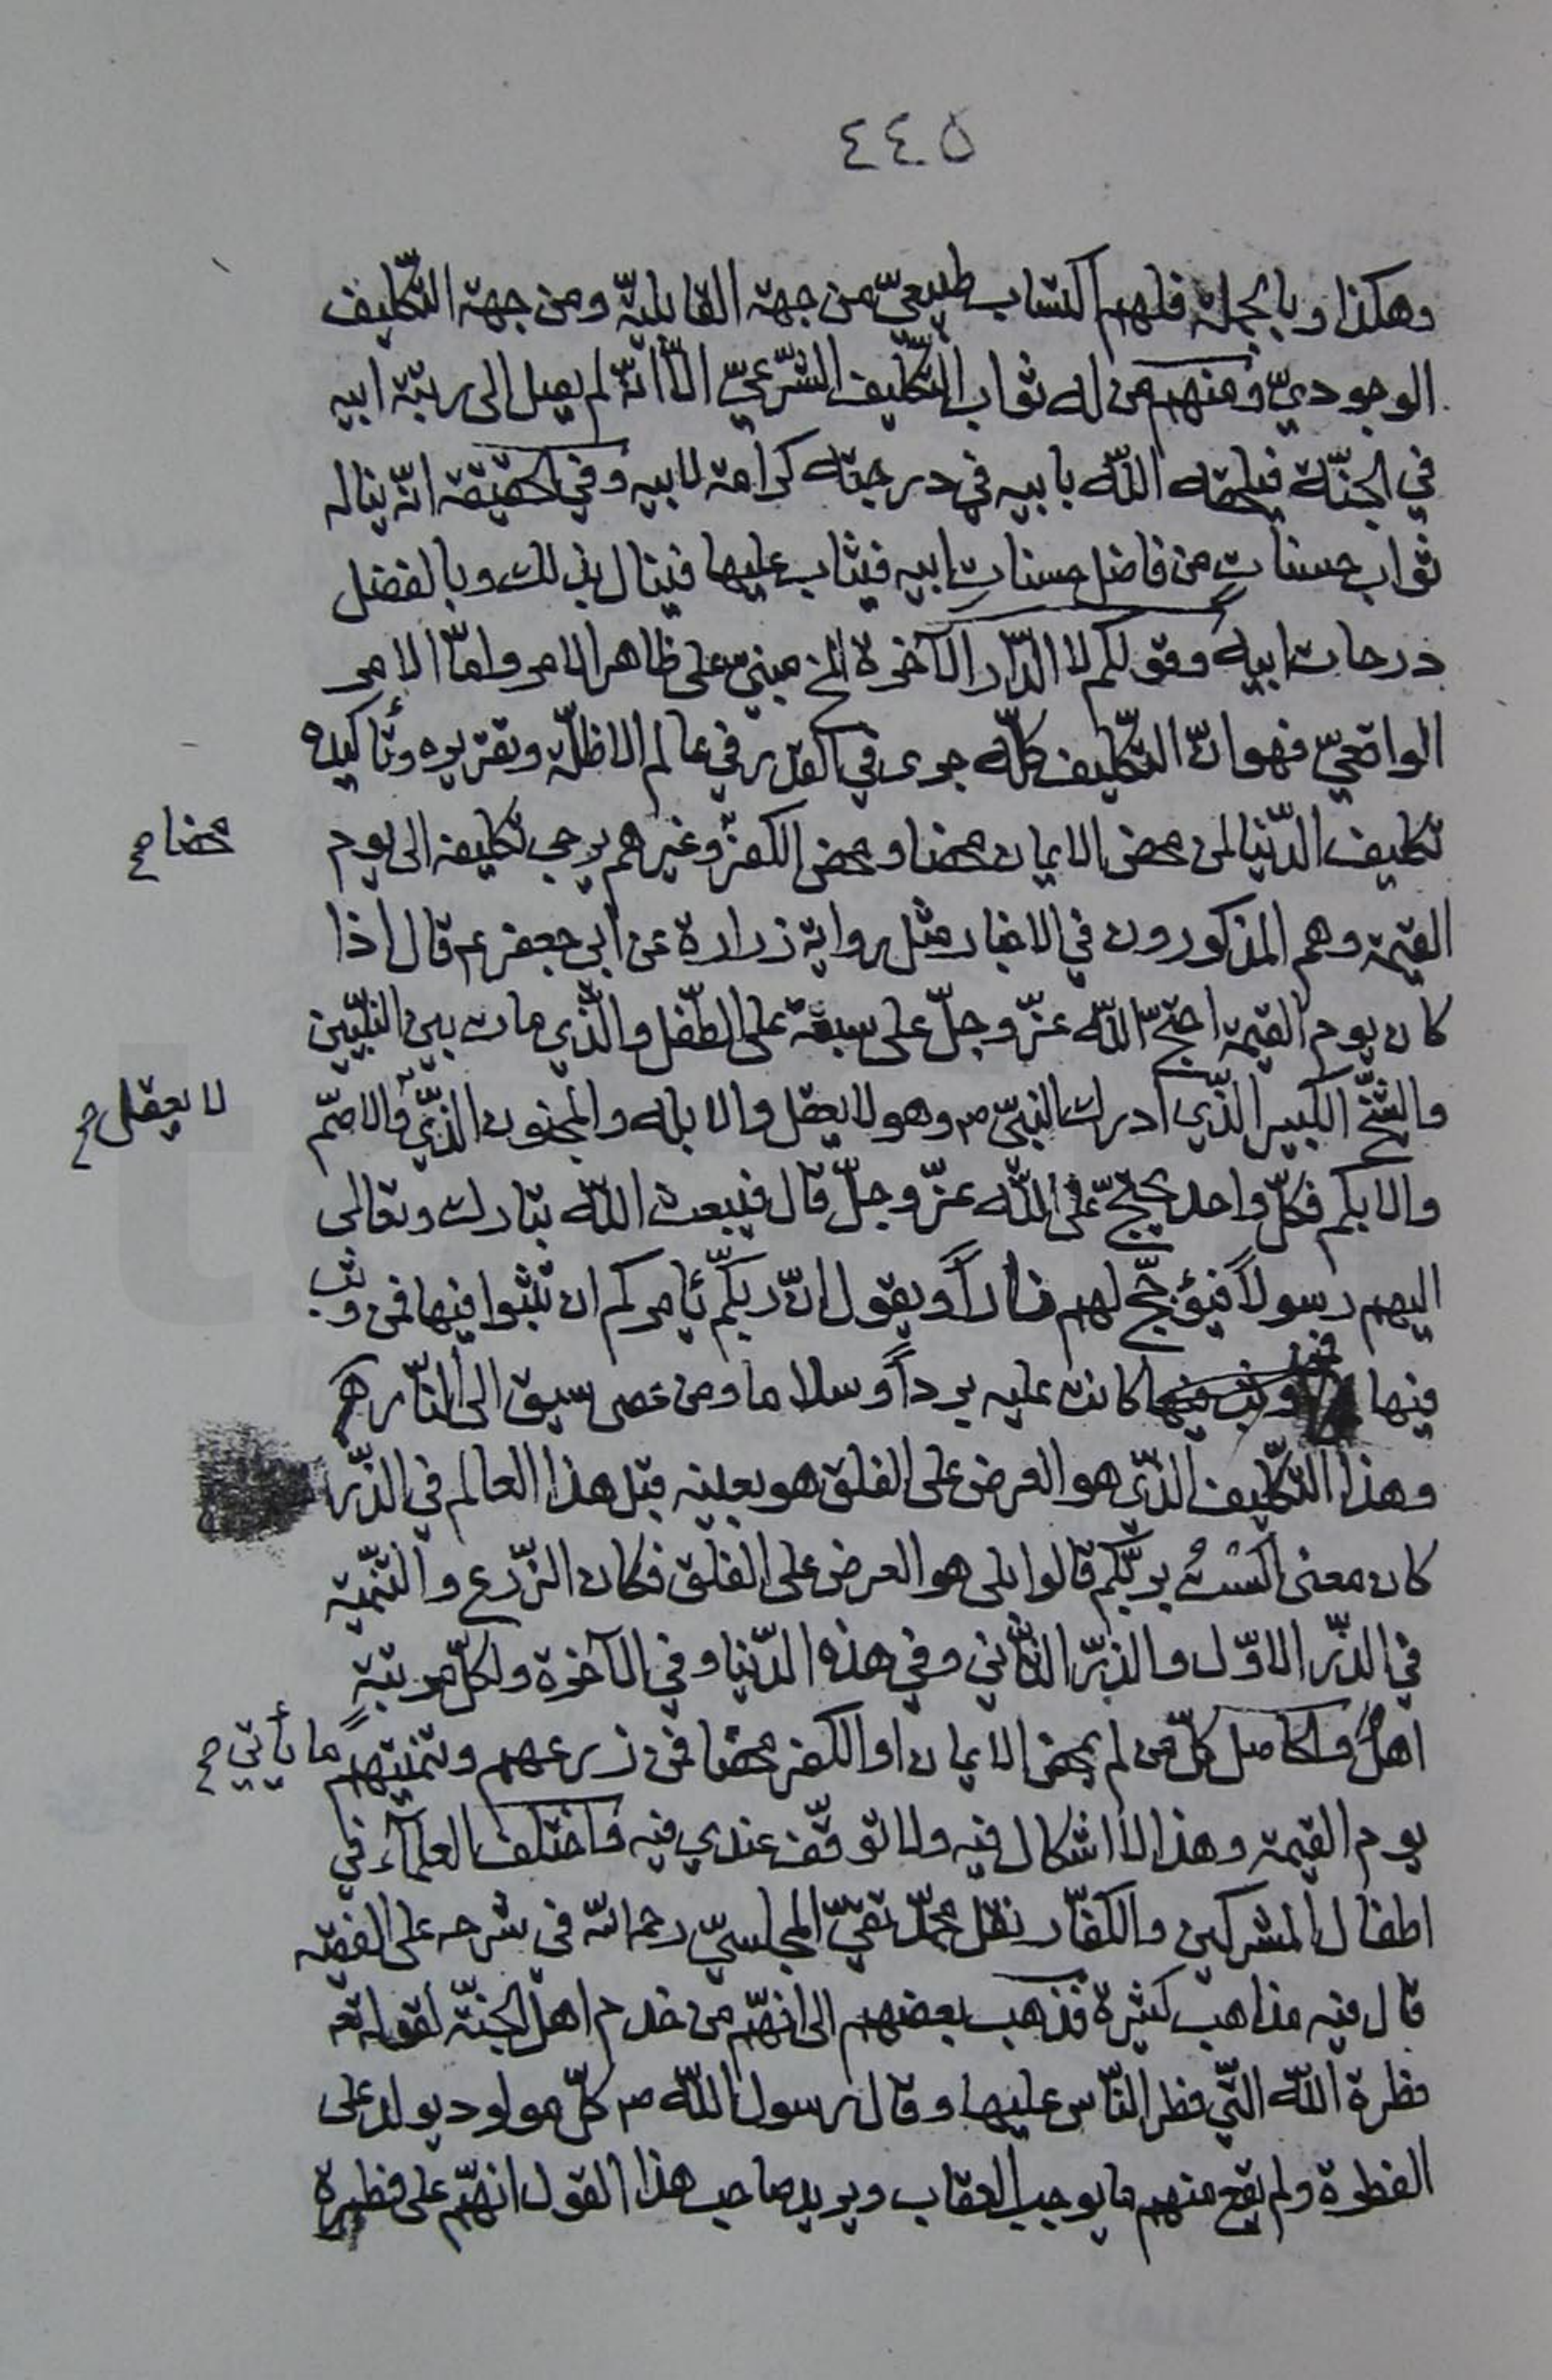 ٤٤٥
وهكذا وبالجملة فلهم اكتساب طبيعيّ من جهة القابليّة ومن جهة التّكليف
الوجوديّ ومنهم من له ثواب التّكليف الشّرعيّ الّا انّه لم يصل الى رتبة ابيه
في الجنّة فيلحقه اللّه بابيه في درجته كرامة لابيه وفي الحقيقة انّه يناله
ثواب حسناتٍ من فاضل حسنات ابيه فيثاب عليها فينال بذلك وبالفضل
درجات ابيه وقولكم لا الدّار الآخرة الخ مبنيّ على ظاهر الامر وامّا الامر
الواقعيّ فهو انّ التّكليف كلّه جرى في القدر في عالم الاظلّة وتقريره وتأكيده
تكليف الدّنيا لمن محض الايمان محضا ومحض الكفر وغيرهم يرجى تكليفه الى يوم
محضا صح
القيمة وهم المذكورون في الاخبار مثل رواية زرارة عن ابي جعفر ع قال اذا
كان يوم القيمة احتجّ اللّه عزّ وجلّ على سبعة على الطّفل والّذي مات بين النّبيّين
والشّيخ الكبير الّذي ادرك النّبيّ ص وهو لا يعقل والابله والمجنون الّذي والاصمّ
لا يعقل صح
والابكم فكلّ واحد يحتجّ على اللّه عزّ وجلّ قال فيبعث اللّه تبارك وتعالى
اليهم رسولاً فيؤجّج لهم ناراً ويقول انّ ربّكم يأمركم ان تثبوا فيها فمن وثب
فيها كانت عليه برداً وسلاما ومن عصى سيق الى النّار هـ
وهذا التّكليف الّذي هو العرض على الفلق هو بعينه قبل هذا العالم في الذّر
كان معنى الستُ بربّكم قالوا بلى هو العرض على الفلق فكان الزّرع والتّنمية
في الذّر الاوّل والذّر الثّاني وفي هذه الدّنيا وفي الآخرة ولكلّ مرتبةٍ
اهلٌ والحاصل كلّ من لم يمحض الايمان او الكفر محضا فمن زرعهم وتنميتهم
ما يأتي صح
يوم القيمة وهذا لا اشكال فيه ولا توقّف عندي فيه واختلف العلمآء في
اطفال المشركين والكفّار نقل محمّد تقيّ المجلسيّ رحمه اللّه في شرحه على الفقيه
قال فيه مذاهب كثيرة فذهب بعضهم الى انّهم من خدم اهل الجنّة لقوله تع
فطرة اللّه الّتي فطر النّاس عليها وقال رسول اللّه ص كلّ مولود يولد على
الفطرة ولم يقع منهم ما يوجب العقاب ويريد صاحب هذا القول انّهم على فطرة